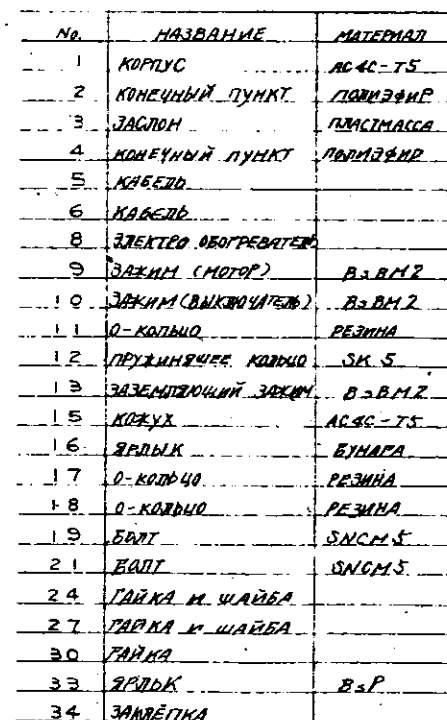 No. НАЗВАНИЕ МАТЕРИАЛ
1 КОРПУС AC4C-T5
2 КОНЕЧНЫЙ ПУНКТ ПОЛИЭФИР
3 ЗАСЛОН ПЛАСТМАССА
4 КОНЕЧНЫЙ ПУНКТ ПОЛИЭФИР
5 КАБЕЛЬ
6 КАБЕЛЬ
8 ЭЛЕКТРО ОБОГРЕВАТЕЛЬ
9 ЗАЖИМ (МОТОР) BsBM2
10 ЗАЖИМ (ВЫКЛЮЧАТЕЛЬ) BsBM2
11 О-КОЛЬЦО РЕЗИНА
12 ПРУЖИНЯЩЕЕ КОЛЬЦО SK 5
13 ЗАЗЕМЛЯЮЩИЙ ЗАЖИМ BsBM2
15 КОЖУХ AC4C-T5
16 ЯРЛЫК БУМАГА
17 О-КОЛЬЦО РЕЗИНА
18 О-КОЛЬЦО РЕЗИНА
19 БОЛТ SNCM5
21 БОЛТ SNCM5
24 ГАЙКА И ШАЙБА
27 ГАЙКА И ШАЙБА
30 ГАЙКА
33 ЯРЛЫК BsP
34 ЗАКЛЁПКА